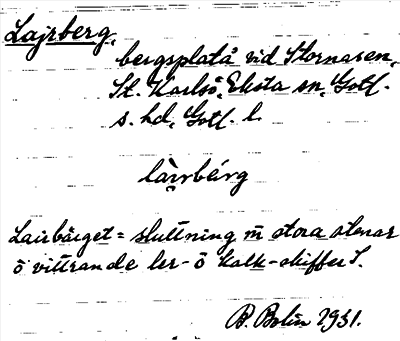 Lajrberg,
bergsplatå vid Stornasen,
St. Karlsö, Eksta sn, Gotl.
s. hd, Gotl. l.
làịrbérg
Lairbärget = sluttning m̄ stora stenar
ō vittrande ler- ō kalk-skiffer S.
B. Bolin 1931.